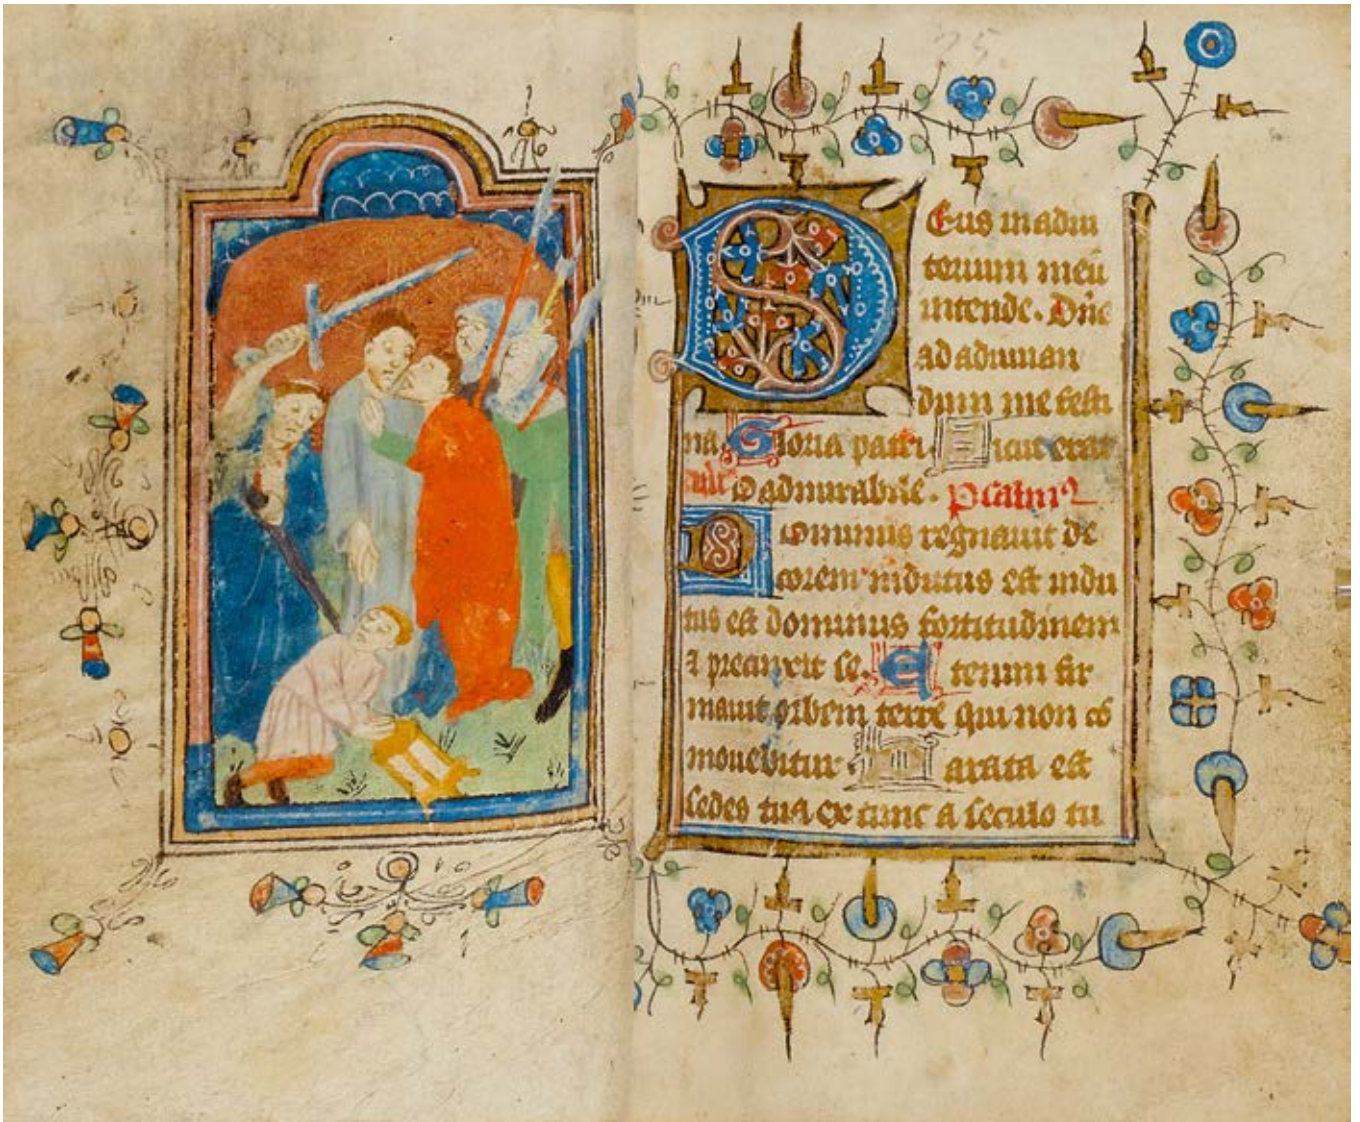 Eus in adiu
torium meū
intende. Dñe
ad adiuuan
dum me festi
na. Gloria patri. Sicut erat
O admirabile. Psalmꝰ
Dominus regnauit de
corem indutus est indu
tus est dominus fortitudinem
⁊ precinxit se. Etenim fir
mauit orbem terre qui non cō
mouebitur. Parata est
sedes tua ex tunc a seculo tu